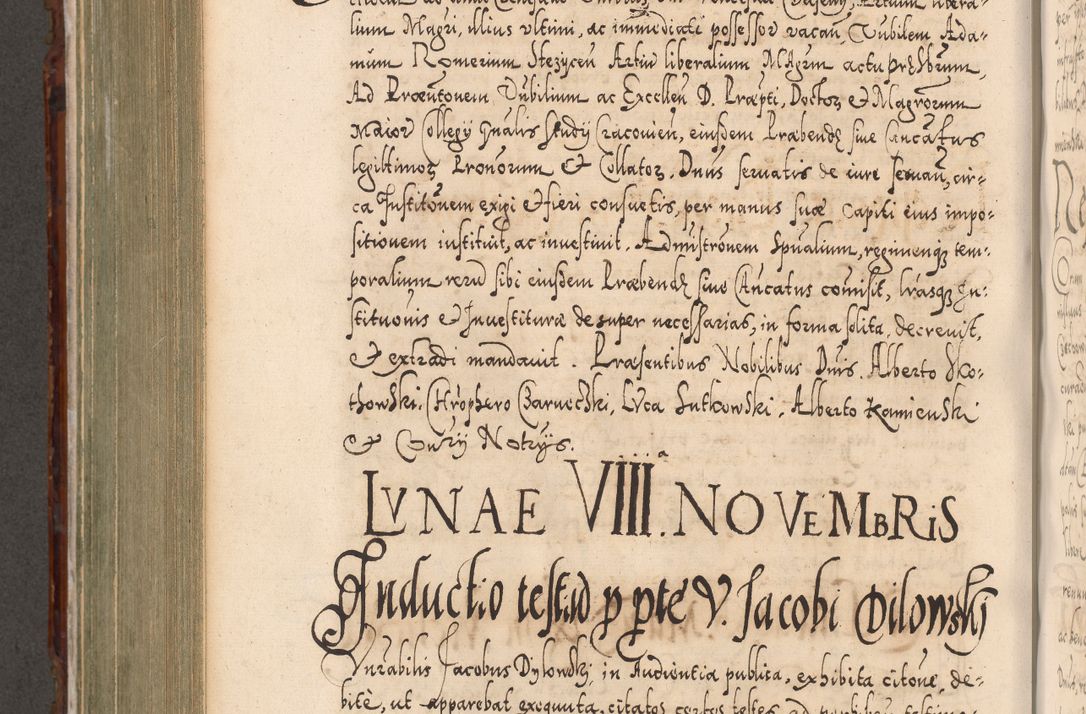 lium Magri, illius ultimi, ac immediati possessor vacañ, Nubilem Ada-
mum Romerium Stezycen Artiu liberalium Magrm actu prsbrum,
Ad Præntonem Nubilium ac Excellen D. Præpti, Doctoꝝ et Magrorum
Maior Collegij gnalis study Cracovien, eiusdem Prabendę sive Cancatus
legittimoꝝ Pronorum et Collatoꝝ. Dnus servatis de iure servañ, cir-
ca Institõnem exigi et fieri consuetis, per manus suæ Capiti eius impo-
sitionem instituit, ac investivit. Admistronem Spũalium, regimenqꝫ tem-
poralium rerũ sibi eiusdem Præbendę sive Cancatus comisit, lrasqꝫ In-
stitutionis et Investituræ desuper necessarias, in forma solita, decrevit,
et extradi mandavit. Præsentibus Nobilibus Dnis. Alberto Sko-
thowski, Chrophero Czarnocski, Luca Sutkowski, Alberto Kamienski
et Cmrij Notrijs.
LVNAE VIIIIa. NOVEMBRiS
Inductio testiũ p pte V. Jacobi Dilowskj
Vnrabilis Jacobus Dylowskj, in Audientia publita, exhibita citõne, de-
bitè, ut apparebat exequuta, citatos certos testes ad